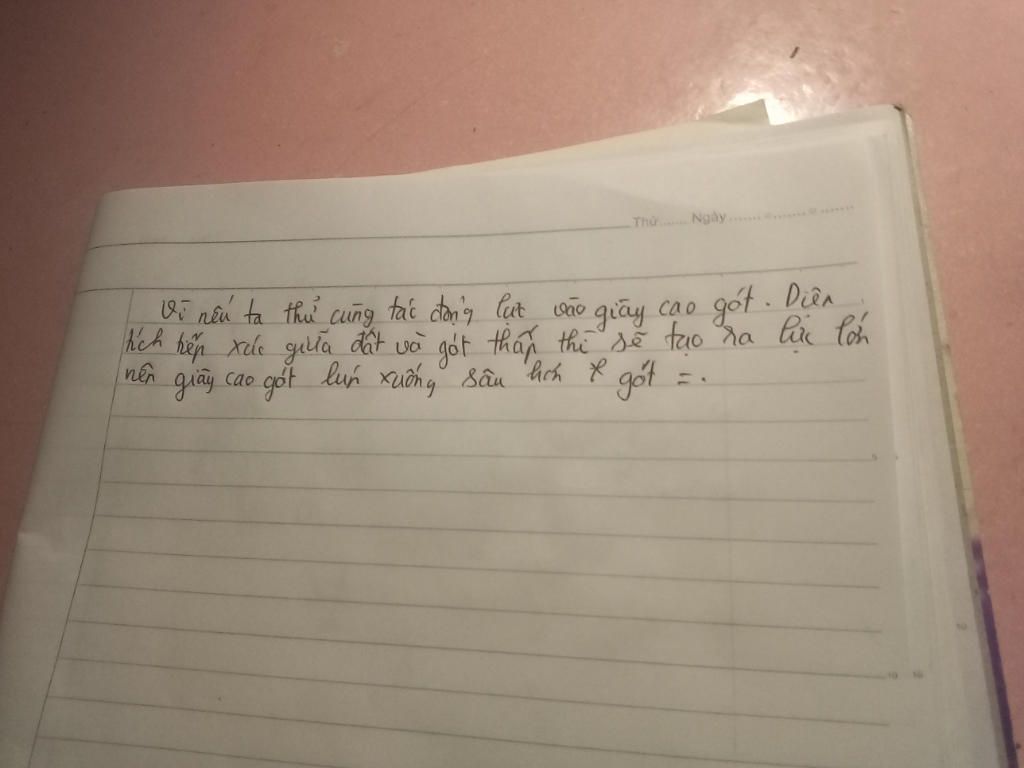 Thứ...... Ngày.......=.......=.......
Vì nếu ta thử cùng tác động lực vào giày cao gót. Diện
tích tiếp xúc giữa đất và gót thấp thì sẽ tạo ra lực lớn
nên giày cao gót lún xuống sâu hơn gót =.
5
10
10 10